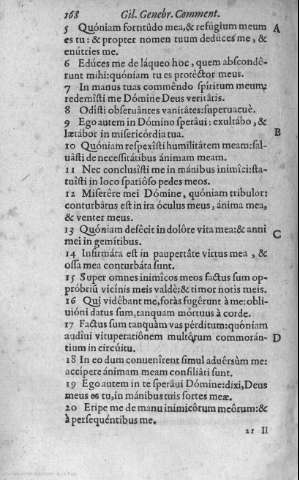 168 Gil. Genebr. Comment.
5 Quóniam fortitúdo mea, & refúgium meum A
es tu: & propter nomen tuum dedúces me, &
enútries me.
6 Edúces me de láqueo hoc, quem abscondê-
runt mihi: quóniam tu es protéctor meus.
7 In manus tuas comméndo spíritum meum:
redemísti me Dómine Deus veritátis.
8 Odísti obseruántes vanitátes: superuacuè.
9 Ego autem in Dómino speráui: exultábo, &
lætábor in misericórdia tua. B
10 Quóniam respexísti humilitátem meam: sal-
uásti de necessitátibus ánimam meam.
11 Nec conclusísti me in mánibus inimíci: sta-
tuísti in loco spatióso pedes meos.
12 Miserére mei Dómine, quóniam tríbulor:
conturbátus est in ira óculus meus, ánima mea,
& venter meus.
13 Quóniam defécit in dolóre vita mea: & anni
mei in gemítibus. C
14 Infirmáta est in paupertáte virtus mea, &
ossa mea conturbáta sunt.
15 Super omnes inimícos meos factus sum op-
próbriũ vicínis meis valdè: & timor notis meis.
16 Qui vidébant me, foràs fugérunt à me: obli-
uióni datus sum, tanquam mórtuus à corde.
17 Factus sum tanquàm vas pérditum: quóniam
audíui vituperatiónem multórum commorán- D
tium in circúitu.
18 In eo dum conuenírent simul aduérsùm me:
accípere ánimam meam consiliáti sunt.
19 Ego autem in te speráui Dómine: dixi, Deus
meus es tu, in mánibus tuis sortes meæ.
20 Eripe me de manu inimicórum meórum: &
à persequéntibus me.
21 Il